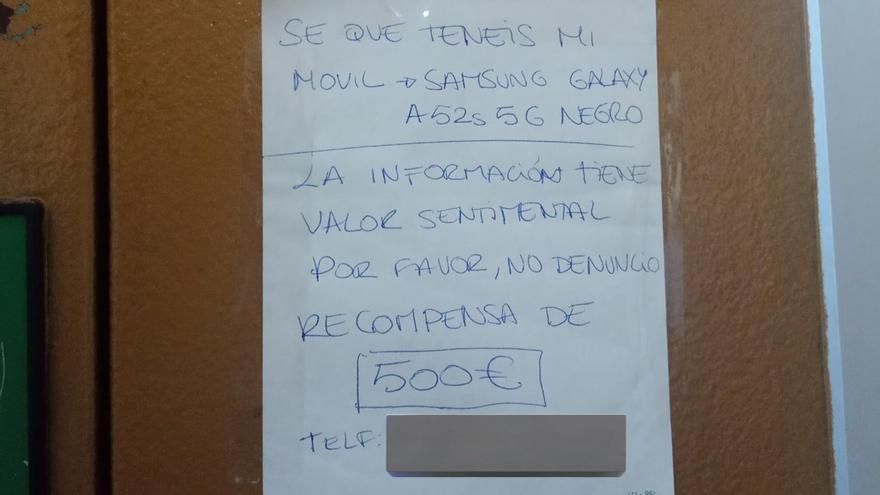 SE QUE TENEIS MI
MOVIL → SAMSUNG GALAXY
A52s 5G NEGRO
LA INFORMACIÓN TIENE
VALOR SENTIMENTAL
POR FAVOR, NO DENUNCIO
RECOMPENSA DE
500€
TELF: